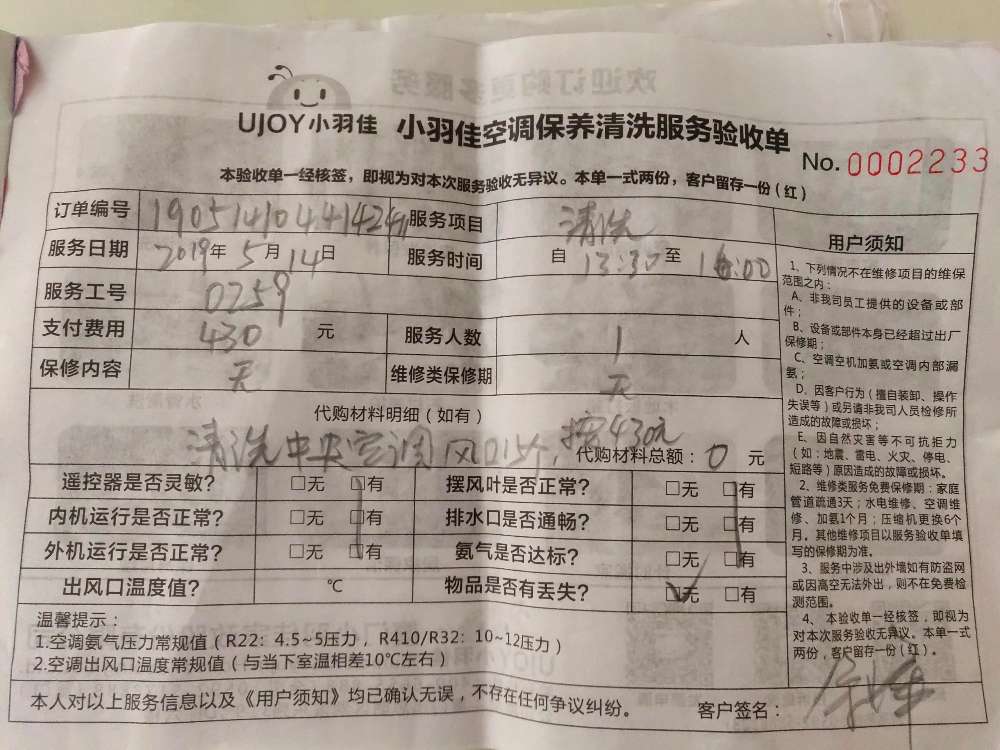 UJOY小羽佳 小羽佳空调保养清洗服务验收单
No. 0002233
本验收单一经核签，即视为对本次服务验收无异议。本单一式两份，客户留存一份（红）
订单编号 服务项目 清洗
服务日期 2019年5月14日 服务时间 自 13:30 至 16:00
服务工号 0259
支付费用 430 元 服务人数 1 人
保修内容 无 维修类保修期 无
代购材料明细（如有）
清洗中央空调风口 430元 代购材料总额：0 元
遥控器是否灵敏？ □无 □有 摆风叶是否正常？ □无 □有
内机运行是否正常？ □无 □有 排水口是否通畅？ □无 □有
外机运行是否正常？ □无 □有 氨气是否达标？ □无 □有
出风口温度值？ ℃ 物品是否有丢失？ ☑无 □有
温馨提示：
1.空调氨气压力常规值（R22：4.5~5压力，R410/R32：10~12压力）
2.空调出风口温度常规值（与当下室温相差10℃左右）
本人对以上服务信息以及《用户须知》均已确认无误，不存在任何争议纠纷。 客户签名：
用户须知
1、下列情况不在维修项目的维保
范围之内：
A、非我司员工提供的设备或部
件；
B、设备或部件本身已经超过出厂
保修期；
C、空调空机加氨或空调内部漏
氨；
D、因客户行为（擅自装卸、操作
失误等）或另请非我司人员检修所
造成的故障或损坏；
E、因自然灾害等不可抗拒力
（如：地震、雷电、火灾、停电、
短路等）原因造成的故障或损坏。
2、维修类服务免费保修期：家庭
管道疏通3天；水电维修、空调维
修、加氨1个月；压缩机更换6个
月。其他维修项目以服务验收单填
写的保修期为准。
3、服务中涉及出外墙如有防盗网
或因高空无法外出，则不在免费检
测范围。
4、本验收单一经核签，即视为
对本次服务验收无异议。本单一式
两份，客户留存一份（红）。